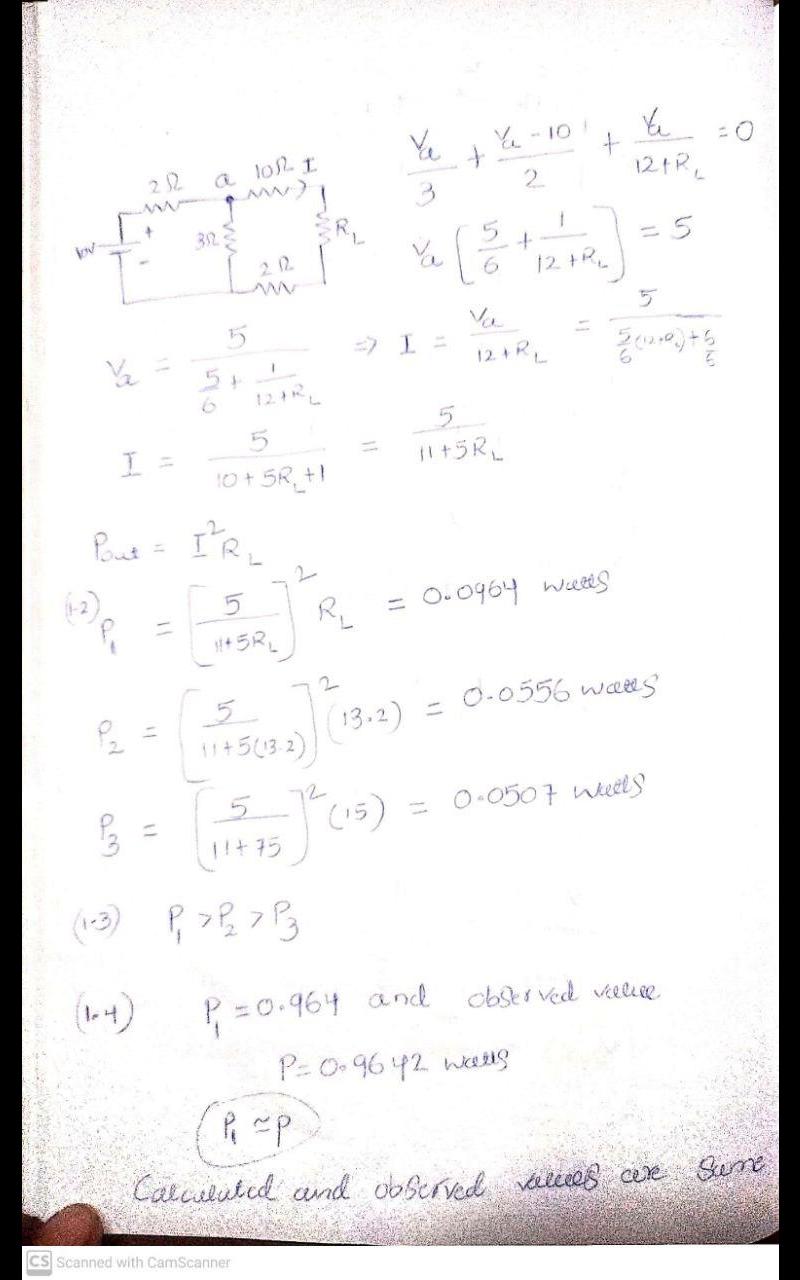 Va/3 + (Va - 10)/2 + Va/(12+RL) = 0
2Ω a 10Ω I
10V + - 3Ω RL
2Ω
Va [5/6 + 1/(12+RL)] = 5
Va = 5/(5/6 + 1/(12+RL)) => I = Va/(12+RL) = 5/(5/6(12+RL)+6/6)
I = 5/(10+5RL+1) = 5/(11+5RL)
Pout = I²RL
(1-2)
P1 = [5/(11+5RL)]² RL = 0.0964 watts
P2 = [5/(11+5(13.2))]² (13.2) = 0.0556 watts
P3 = [5/(11+75)]² (15) = 0.0507 watts
(1-3) P1 > P2 > P3
(1.4) P1 = 0.964 and observed value
P = 0.9642 watts
P1 ≃ P
Calculated and observed values are same
CS Scanned with CamScanner